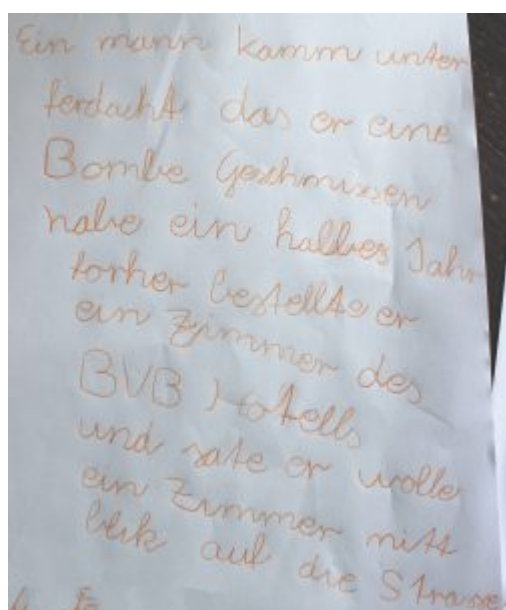 Ein mann kamm unter
ferdacht das er eine
Bombe Geschmissen
habe ein halbes Jahr
forher bestellte er
ein Zimmer des
BVB Hotells
und sate er wolle
ein Zimmer mitt
blik auf die Strasse